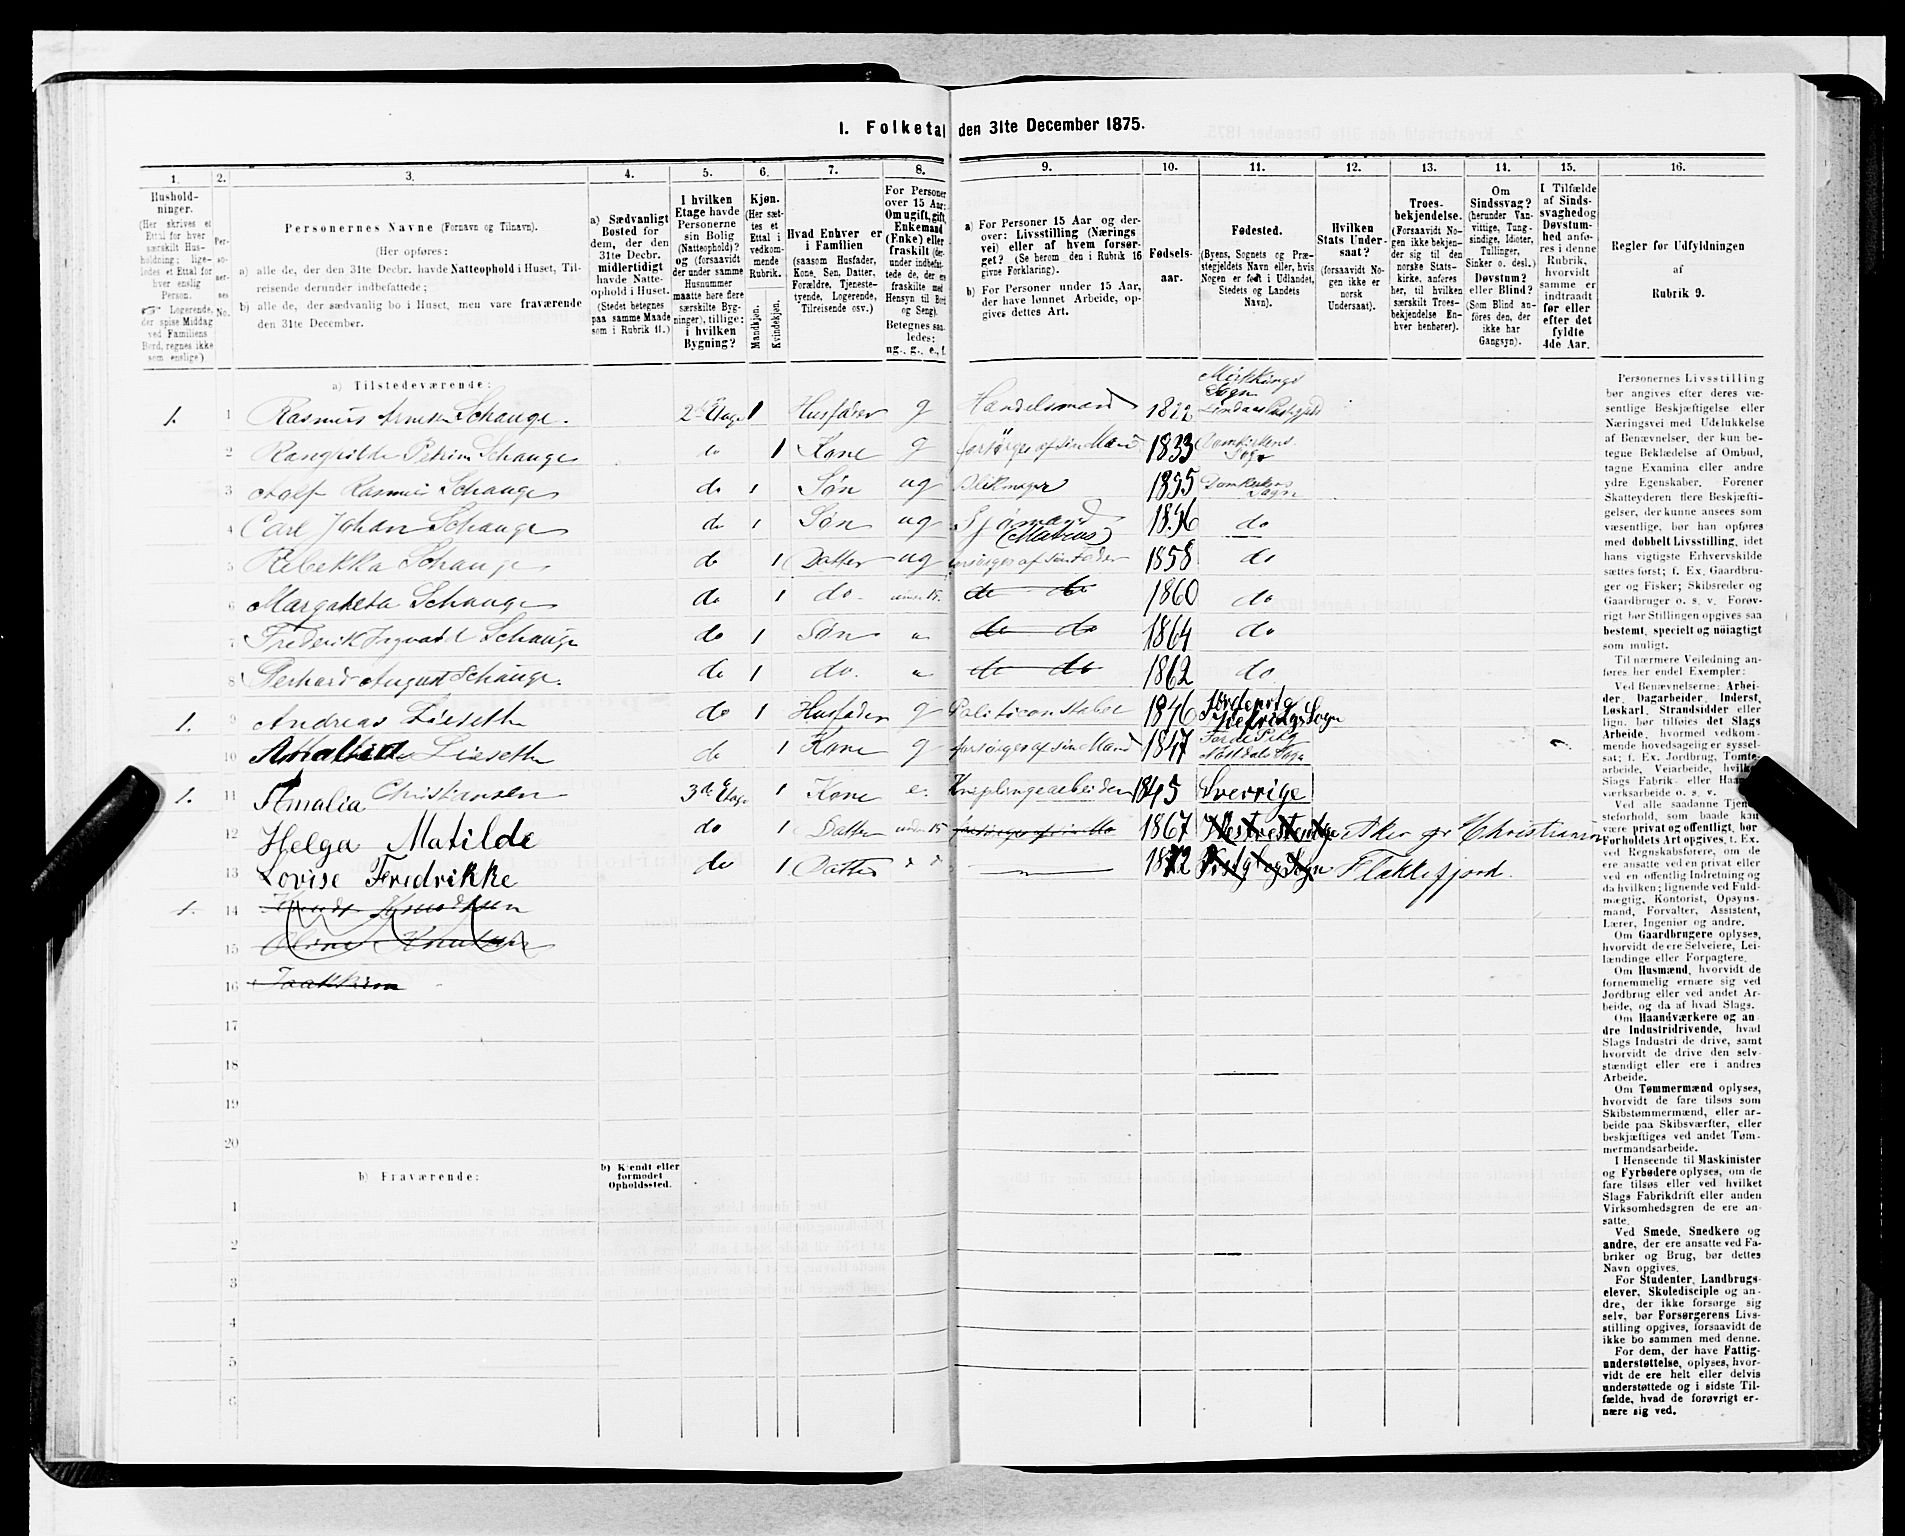 1. Folketal den 31te December 1875.
1.
Hushold-
ninger.
(Her skrives et
Ettal for hver
særskilt Hus-
holdning; lige-
ledes et Ettal for
hver enslig
Person.
Logerende,
der spise Middag
ved Familiens
Bord, regnes ikke
som enslige.)
2.
Per-
soner-
nes
No.
3.
Personernes Navne (Fornavn og Tilnavn).
(Her opføres:
a) alle de, der den 31te Decbr. havde Natteophold i Huset, Til-
reisende derunder indbefattede;
b) alle de, der sædvanlig bo i Huset, men vare fraværende
den 31te December.
4.
a) Sædvanligt
Bosted for
dem, der den
31te Decbr.
midlertidigt
havde Natte-
ophold i Huset.
(Stedet betegnes
paa samme Maade
som i Rubrik 11.)
5.
I hvilken
Etage havde
Personerne
sin Bolig
(Natteophold)?
og (forsaavidt
der under samme
Husnummer
maatte høre flere
særskilte Byg-
ninger), tillige:
i hvilken
Bygning?
6.
Kjøn.
(Her sæt-
tes et
Ettal i
vedkom-
mende
Rubrik.
Mandkjøn.
Kvindekjøn.
7.
Hvad Enhver er
i Familien
(saasom Husfader,
Kone, Søn, Datter,
Forældre, Tjeneste-
tyende, Logerende,
Tilreisende osv.)
8.
For Personer
over 15 Aar:
Om ugift, gift,
Enkemand
(Enke) eller
fraskilt (der-
under indbefat-
tede de, der ere
fraskilte med
Hensyn til Bord
og Seng).
Betegnes saa-
ledes:
ug., g., e., f.
9.
a) For Personer 15 Aar og der-
over: Livsstilling (Nærings
vei) eller af hvem forsør-
get? (Se herom den i Rubrik 16
givne Forklaring).
b) For Personer under 15 Aar,
der have lønnet Arbeide, op-
gives dettes Art.
10.
Fødsels-
aar.
11.
Fødested.
(Byens, Sognets og Præ-
stegjeldets Navn eller, hvis
Nogen er født i Udlandet,
Stedets og Landets
Navn).
12.
Hvilken
Stats Under-
saat?
(forsaavidt No-
gen ikke er
norsk
Undersaat).
13.
Troes-
bekjendelse.
(Forsaavidt No-
gen ikke bekjen-
der sig til den
norske Stats-
kirke, anføres
her, til hvilken
særskilt Troes-
bekjendelse En-
hver henhører).
14.
Om
Sindssvag?
(herunder Van-
vittige, Tung-
sindige, Idioter,
Tullinger,
Sinker o. desl.)
Døvstum?
eller Blind?
(Som Blind an-
føres den, der
ikke har
Gangsyn).
15.
I Tilfælde
af Sinds-
svaghed og
Døvstum-
hed anfø-
res i denne
Rubrik,
hvorvidt
samme er
indtraadt
før eller
efter det
fyldte
4de Aar.
16.
Regler for Udfyldningen
af
Rubrik 9.
a) Tilstedeværende:
1. 1 Rasmus Arnesen Schauge. 2den Etage 1 Husfader g Handelsmand 1822 Sogn Lindaas Præstgjeld
2 Petrine Schauge do 1 Kone g forsørges af sin Mand 1833 Domkirkens Sogn
3 Rasmus Schauge do 1 Søn ug Blikmager 1855 Domkirkens Sogn
4 Carl Johan Schauge do 1 Søn ug Sjømand (Matros) 1856 do
5 Rebekka Schauge do 1 Datter ug forsørges af sin Fader 1858 do
6 Margaketa Schauge do 1 do. under 15. do do 1860 do
7 Frederik Ingvald Schauge do 1 Søn " do do 1864 do
8 Gerhard August Schauge. do 1 do. " do do 1862 do
1. 9 Andreas Lieseth do 1 Husfader g Politiconstabel 1846 Sogn
10 Lieseth do 1 Kone g forsørges af sin Mand 1847 Førde
1. 11 Amalia Christiansen 3die Etage 1 Kone e. 1845 Sverrige
12 Helga Matilde do 1 Datter under 15 1867 Aker pr Christiania
13 Lovise Fredrikke do 1 Datter " " 1872 Flakkefjord.
1. 14 Knudsen
15 Oline Knudsen
16
17
18
19
20
b) Fraværende:
b) Kjendt eller
formodet
Opholdssted.
1
2
3
4
5
6
Personernes Livsstilling
bør angives efter deres væ-
sentlige Beskjæftigelse eller
Næringsvei med Udelukkelse
af Benævnelser, der kun be-
tegne Beklædelse af Ombud,
tagne Examina eller andre
ydre Egenskaber. Forener
Skatteyderen flere Beskjæfti-
gelser, der kunne ansees som
væsentlige, bør han opføres
med dobbelt Livsstilling, idet
hans vigtigste Erhvervskilde
sættes først; f. Ex. Gaardbru-
ger og Fisker; Skibsreder og
Gaardbruger o. s. v. Forøv-
rigt bør Stillingen opgives saa
bestemt, specielt og nøiagtigt
som muligt.
Til nærmere Veiledning an-
føres her endel Exempler:
Ved Benævnelserne: Arbei-
der, Dagarbeider, Inderst,
Løskarl, Strandsidder eller
lign. bør tilføies det Slags
Arbeide, hvormed vedkom-
mende hovedsagelig er syssel-
sat; f. Ex. Jordbrug, Tomte-
arbeide, Veiarbeide, hvilket
Slags Fabrik- eller Haand-
værksarbeide o. s. v.
Ved alle saadanne Tjene-
steforhold, som baade kan
være privat og offentligt, bør
Forholdets Art opgives, t. Ex.
ved Regnskabsførere, om de
ere ansatte ved en privat eller
ved en offentlig Indretning og
da hvilken; lignende ved Fuld-
mægtig, Kontorist, Opsyns-
mand, Forvalter, Assistent,
Lærer, Ingeniør og andre.
Om Gaardbrugere oplyses,
hvorvidt de ere Selveiere, Lei-
lændinge eller Forpagtere.
Om Husmænd, hvorvidt de
fornemmelig ernære sig ved
Jordbrug eller ved andet Ar-
beide, og da af hvad Slags.
Om Haandværkere og an
dre Industridrivende, hvad
Slags Industri de drive, samt
hvorvidt de drive den selv-
stændigt eller ere i andres
Arbeide.
Om Tømmermænd oplyses,
hvorvidt de fare tilsøs som
Skibstømmermænd, eller ar-
beide paa Skibsværfter, eller
beskjæftiges ved andet Tøm-
mermandsarbeide.
I Henseende til Maskinister
og Fyrbødere oplyses, om de
fare tilsøs eller ved hvilket
Slags Fabrikdrift eller anden
Virksomhedsgren de ere an-
satte.
Ved Smede, Snedkere og
andre, der ere ansatte ved Fa-
briker og Brug, bør dettes
Navn opgives.
For Studenter, Landbrugs-
elever, Skoledisciple og an-
dre, der ikke forsørge sig
selv, bør Forsørgerens Livs-
stilling opgives, forsaavidt de
ikke bo sammen med denne.
For dem, der have Fattig-
understøttelse, oplyses, hvor-
vidt de ere helt eller delvis
understøttede og i sidste Til-
fælde, hvad de forøvrigt er-
nære sig ved.